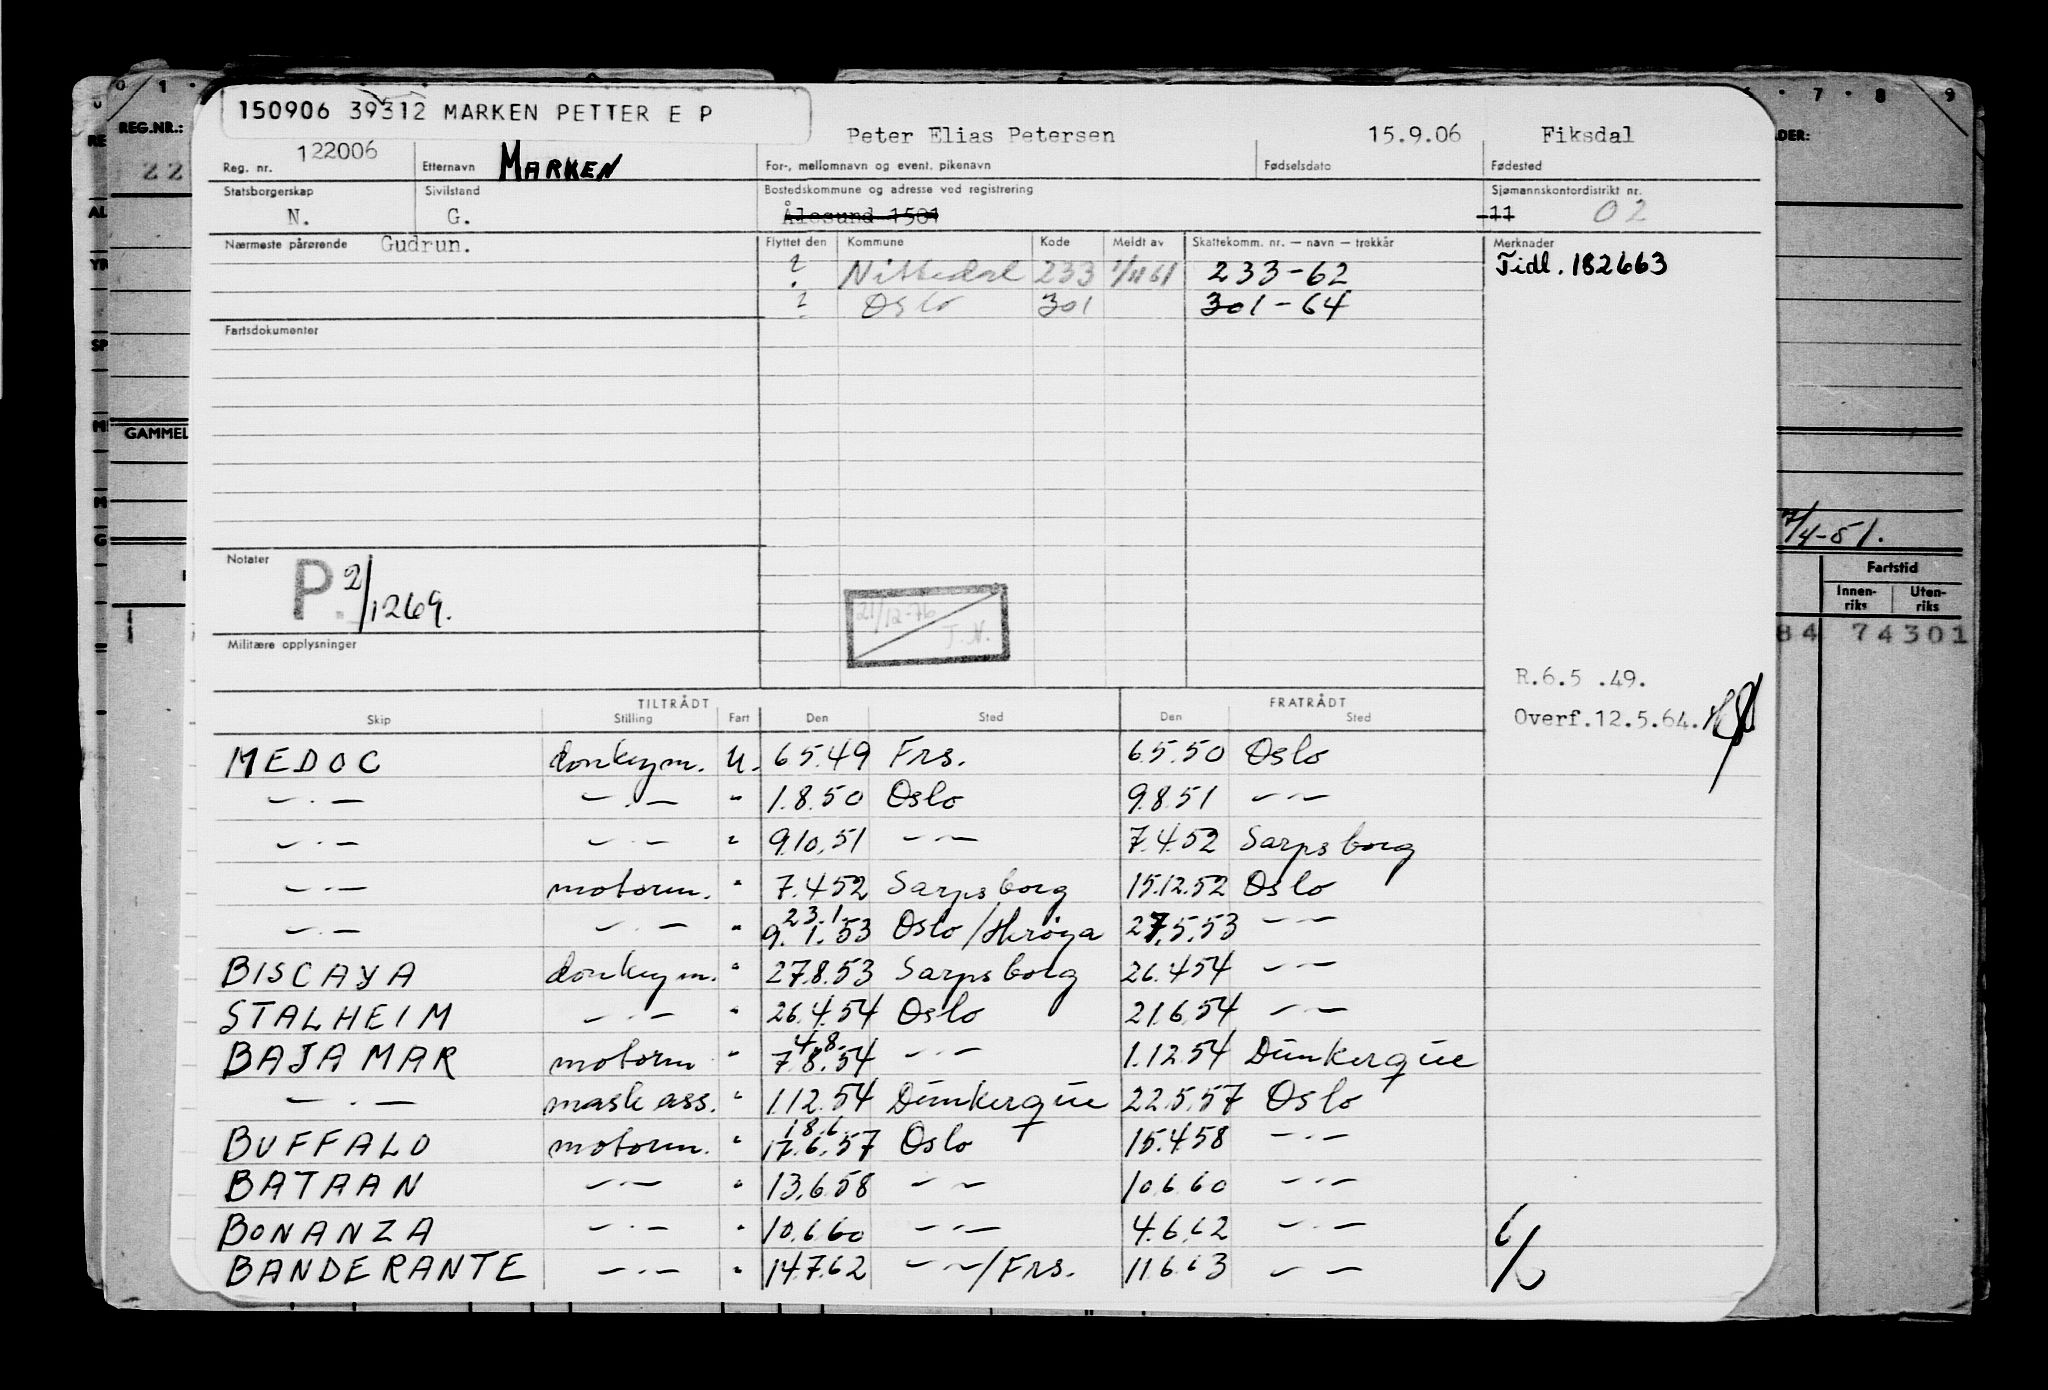 150906 39312 MARKEN PETTER E P
Peter Elias Petersen 15.9.06 Fiksdal
122006 MARKEN
Reg. nr. Etternavn For-, mellomnavn og event. pikenavn Fødselsdato Fødested
Statsborgerskap Sivilstand Bostedskommune og adresse ved registrering Sjømannskontordistrikt nr.
N. G. Ålesund 1501 11 02
Nærmeste pårørende Gudrun. Flyttet den Kommune Kode Meldt av Skattekomm. nr. — navn — trekkår Merknader
? Nittedal 233 1/11 61 233-62 Tidl. 182663
? Oslo 301 301-64
Fartsdokumenter
Notater
P 2/1269.
21/12-76 J.N.
Militære opplysninger
R.6.5 .49.
TILTRÅDT FRATRÅDT Overf.12.5.64.
Skip Stilling Fart Den Sted Den Sted
MEDOC donkeym. U. 6.5.49 Frs. 6.5.50 Oslo
—·— —·— " 1.8.50 Oslo 9.8.51 —·—
—·— —·— " 9.10.51 —·— 7.4.52 Sarpsborg
—·— motorm. " 7.4.52 Sarpsborg 15.12.52 Oslo
23.1.
—·— —·— " 9.1.53 Oslo/Herøya 27.5.53 —·—
BISCAYA donkeym. " 27.8.53 Sarpsborg 26.4.54 —·—
STALHEIM —·— " 26.4.54 Oslo 21.6.54 —·—
4.8.
BAJAMAR motorm " 7.8.54 —·— 1.12.54 Dunkerque
—·— mask ass. " 1.12.54 Dunkerque 22.5.57 Oslo
18.6.
BUFFALO motorm. " 17.6.57 Oslo 15.4.58 —·—
BATAAN —·— " 13.6.58 —·— 10.6.60 —·—
BONANZA —·— " 10.6.60 —·— 4.6.62 —·—
BANDERANTE —·— " 14.7.62 —·—/Frs. 11.6.63 —·—
0 1
REG.NR.:
22
GAMMEL
7 8 9
7/4-51.
Fartstid
Innen-riks Uten-riks
84 74301